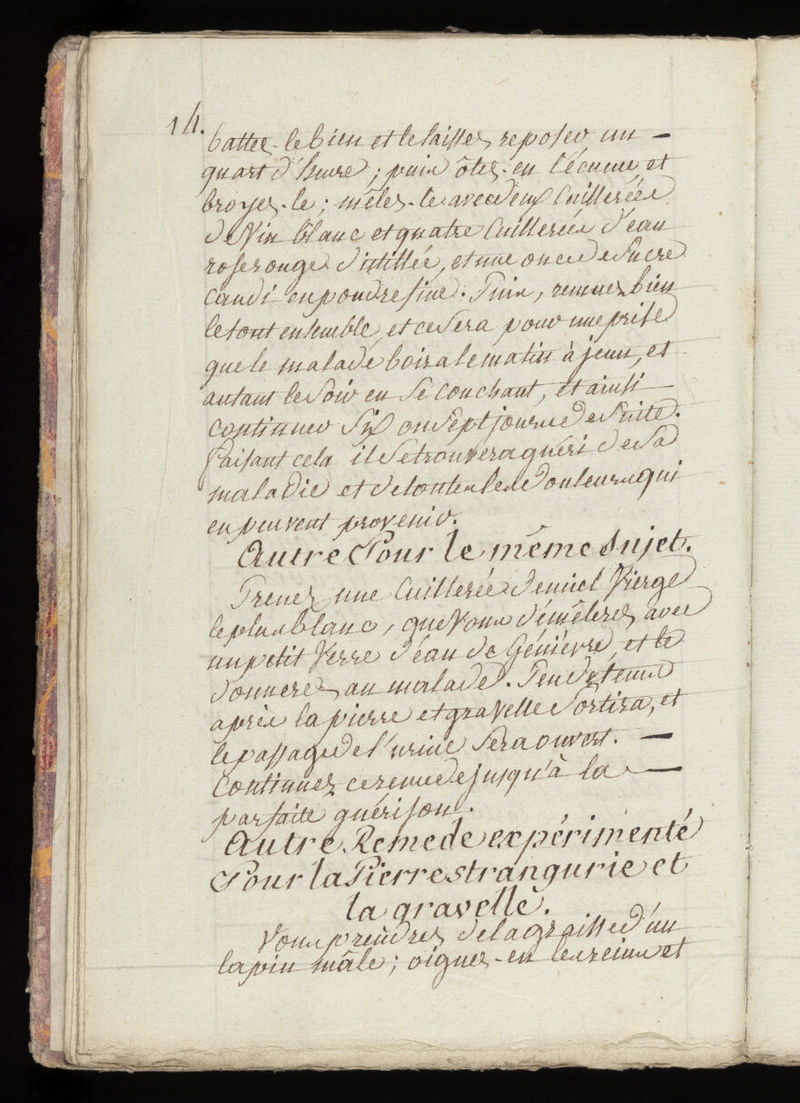 14.
battez-le bien et le laissez reposer un —
quart d'heure ; puis ôtez-en l'écume et
broyez-le ; mêlez-le avec deux Cuillerées
de Vin blanc et quatre Cuillerées d'eau
rose rouge distillée, et une once de Sucre
Candi en poudre fine. Puis, remuez bien
le tout ensemble, et ce Sera pour une prise
que le malade boira le matin à jeun, et
autant le Soir en Se couchant, et ainsi —
continuer Six ou Sept jours de Suite.
Faisant cela il Se trouvera guéri de Sa
maladie et de toutes les douleurs qui
en peuvent provenir.
Autre Pour le même Sujet.
Prenez une Cuillerée de miel Vierge
le plus blanc, que Vous démêlerez avec
un petit Verre d'eau de Génièvre, et le
donnerez au malade. Peu de tems
après la pierre et gravelle Sortira, et
le passage de l'urine Sera ouvert. —
Continuez ce remede jusqu'à la —
parfaite guérison.
Autre Remede expérimenté
Pour la Pierre strangurie et
la gravelle.
Vous prendrez de la graisse d'un
lapin mâle ; oignez-en les reins et